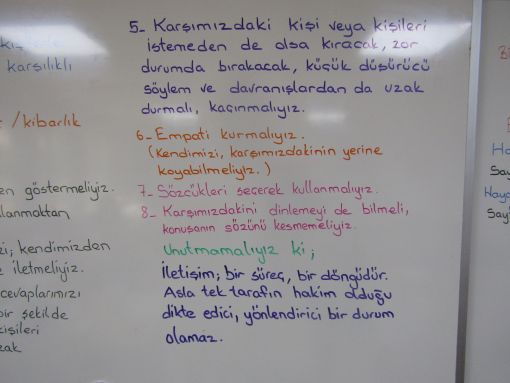 5- Karşımızdaki kişi veya kişileri
istemeden de olsa kıracak, zor
durumda bırakacak, küçük düşürücü
söylem ve davranışlardan da uzak
durmalı, kaçınmalıyız.
6- Empati kurmalıyız.
(Kendimizi, karşımızdakinin yerine
koyabilmeliyiz.)
7- Sözcükleri seçerek kullanmalıyız.
8- Karşımızdakini dinlemeyi de bilmeli,
konuşanın sözünü kesmemeliyiz.
Unutmamalıyız ki;
İletişim; bir süreç, bir döngüdür.
Asla tek tarafın hakim olduğu
dikte edici, yönlendirici bir durum
olamaz.
karşılıklı
/kibarlık
göstermeliyiz.
kendimizden
iletmeliyiz.
cevaplarımızı
bir şekilde
kişileri